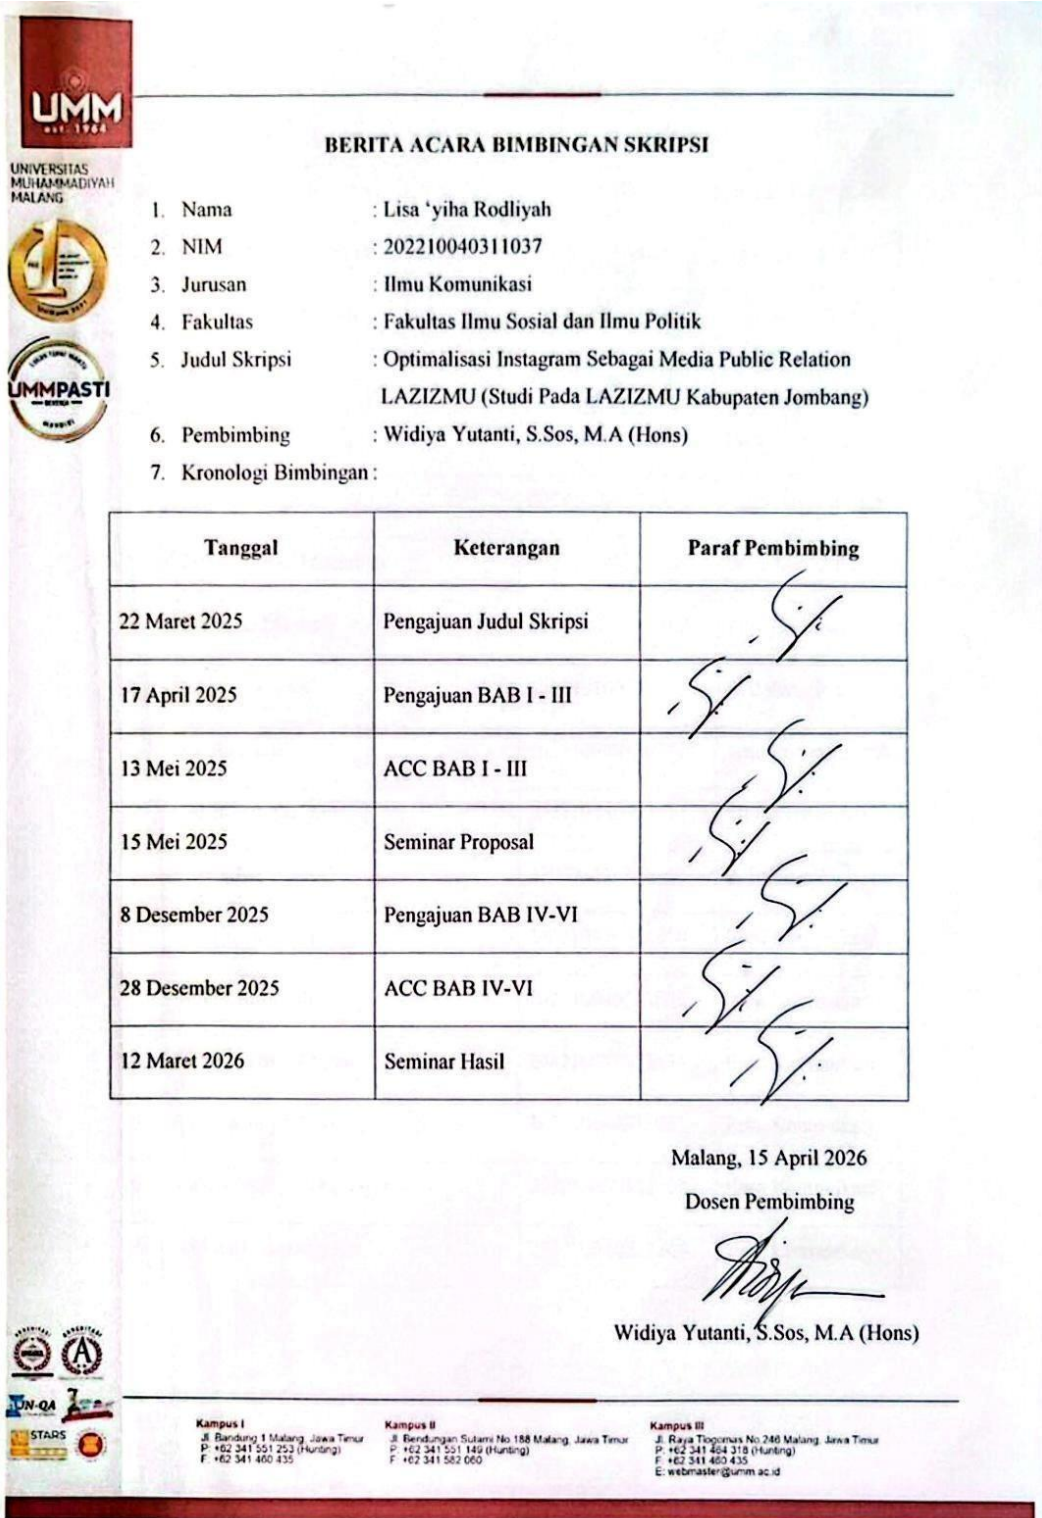 UMM
est. 1964
UNIVERSITAS
MUHAMMADIYAH
MALANG
BERITA ACARA BIMBINGAN SKRIPSI
1. Nama : Lisa ‘yiha Rodliyah
2. NIM : 202210040311037
3. Jurusan : Ilmu Komunikasi
4. Fakultas : Fakultas Ilmu Sosial dan Ilmu Politik
5. Judul Skripsi : Optimalisasi Instagram Sebagai Media Public Relation
LAZIZMU (Studi Pada LAZIZMU Kabupaten Jombang)
6. Pembimbing : Widiya Yutanti, S.Sos, M.A (Hons)
7. Kronologi Bimbingan :
UMMPASTI
Tanggal Keterangan Paraf Pembimbing
22 Maret 2025 Pengajuan Judul Skripsi
17 April 2025 Pengajuan BAB I - III
13 Mei 2025 ACC BAB I - III
15 Mei 2025 Seminar Proposal
8 Desember 2025 Pengajuan BAB IV-VI
28 Desember 2025 ACC BAB IV-VI
12 Maret 2026 Seminar Hasil
Malang, 15 April 2026
Dosen Pembimbing
Widiya Yutanti, S.Sos, M.A (Hons)
A
UN-QA
STARS
Kampus I
Jl. Bandung 1 Malang, Jawa Timur
P: +62 341 551 253 (Hunting)
F: +62 341 460 435
Kampus II
Jl. Bendungan Sutami No 188 Malang, Jawa Timur
P: +62 341 551 149 (Hunting)
F: +62 341 582 060
Kampus III
Jl. Raya Tlogomas No 246 Malang, Jawa Timur
P: +62 341 464 318 (Hunting)
F: +62 341 460 435
E: webmaster@umm.ac.id